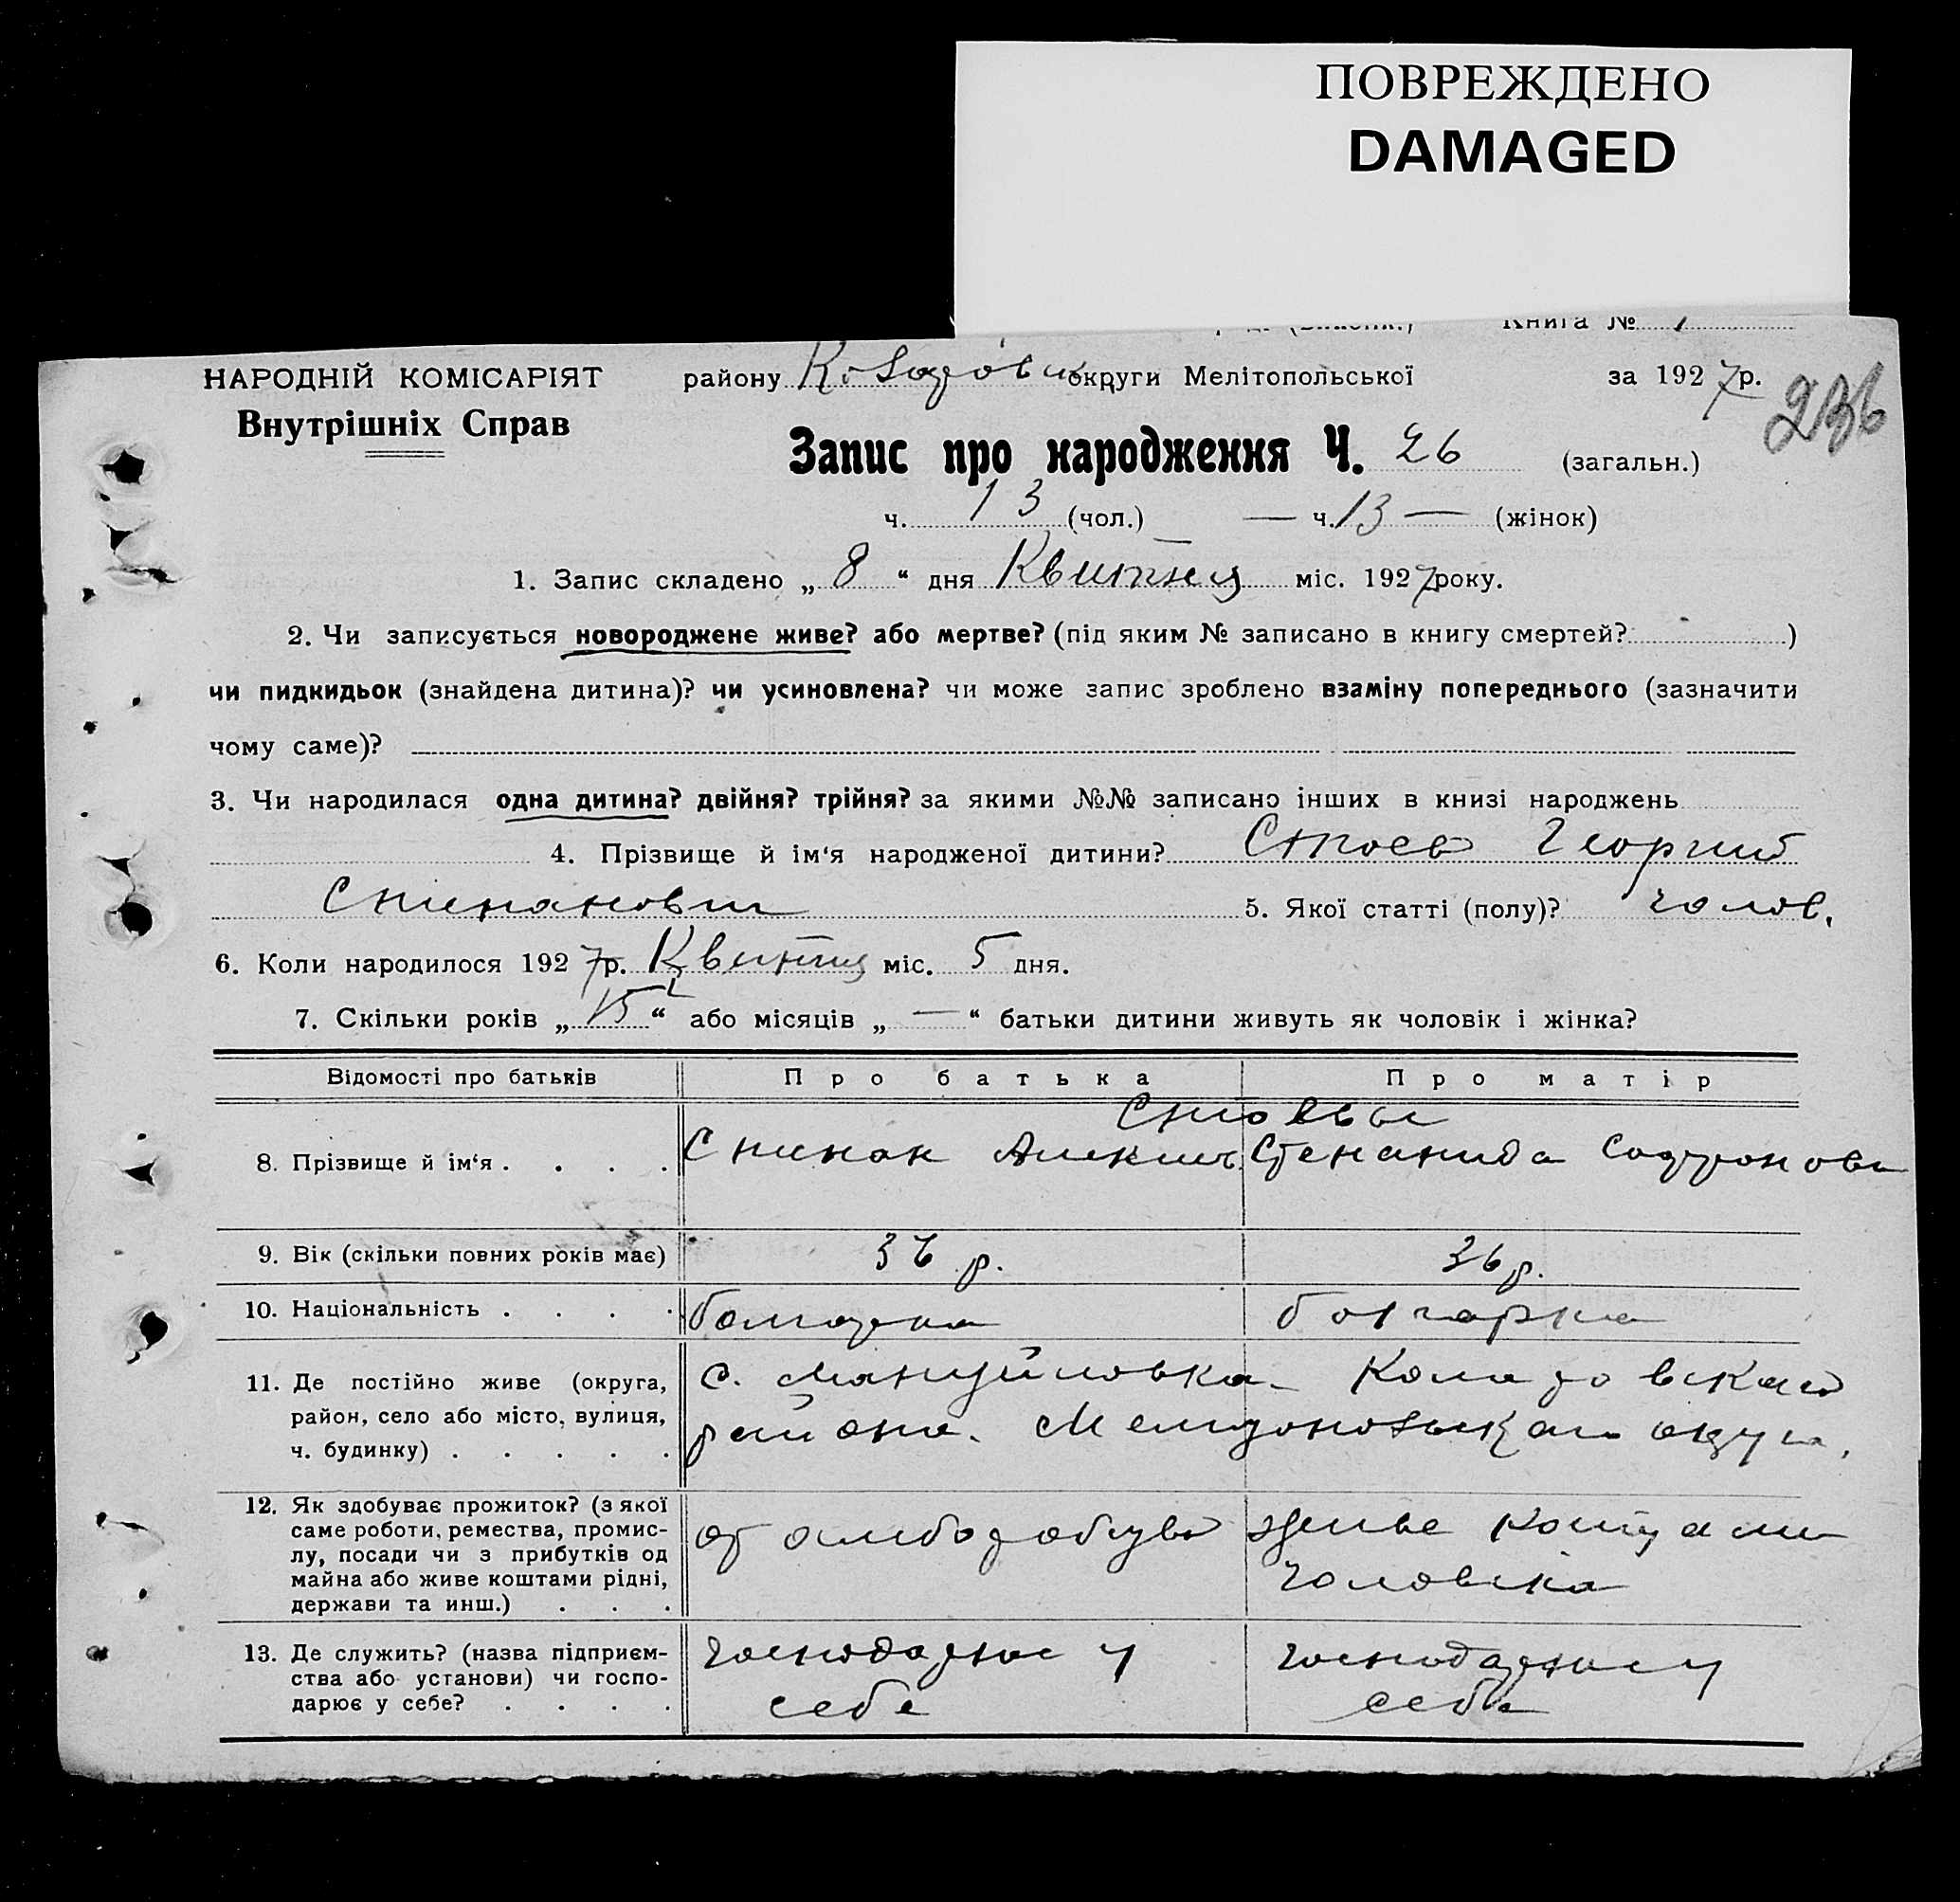 ПОВРЕЖДЕНО
DAMAGED
Книга №
НАРОДНІЙ КОМІСАРІЯТ
Внутрішніх Справ
району округи Мелітопольської за 1927р.
236
Запис про народження Ч. 26 (загальн.)
ч. 13 (чол.) — ч. 13 — (жінок)
1. Запис складено „ 8 “ дня Квитня міс. 1927 року.
2. Чи записується новороджене живе? або мертве? (під яким № записано в книгу смертей? )
чи пидкидьок (знайдена дитина)? чи усиновлена? чи може запис зроблено взаміну попереднього (зазначити
чому саме)?
3. Чи народилася одна дитина? двійня? трійня? за якими №№ записано інших в книзі народжень
4. Прізвище й ім‘я народженої дитини? Стоев Георгий
Степанович 5. Якої статті (полу)? чолов.
6. Коли народилося 1927р. Квитня міс. 5 дня.
7. Скільки років „ 15 “ або місяців „ — “ батьки дитини живуть як чоловік і жінка?
Відомості про батьків Про батька Про матір
Стоевы
8. Прізвище й ім‘я . . . . Степан Алексеев Степанида Софронова
9. Вік (скільки повних років має) 36 р. 36 р.
10. Національність . . . . болгарка
11. Де постійно живе (округа,
район, село або місто, вулиця,
ч. будинку) . . . . .
с. Мануйловка
района. округи.
12. Як здобуває прожиток? (з якої
саме роботи, ремества, промис-
лу, посади чи з прибутків од
майна або живе коштами рідні,
держави та инш.) . . .
коштами
чоловіка
13. Де служить? (назва підприєм-
ства або установи) чи госпо-
дарює у себе? . . . .
господарює у
себе
господарює у
себе